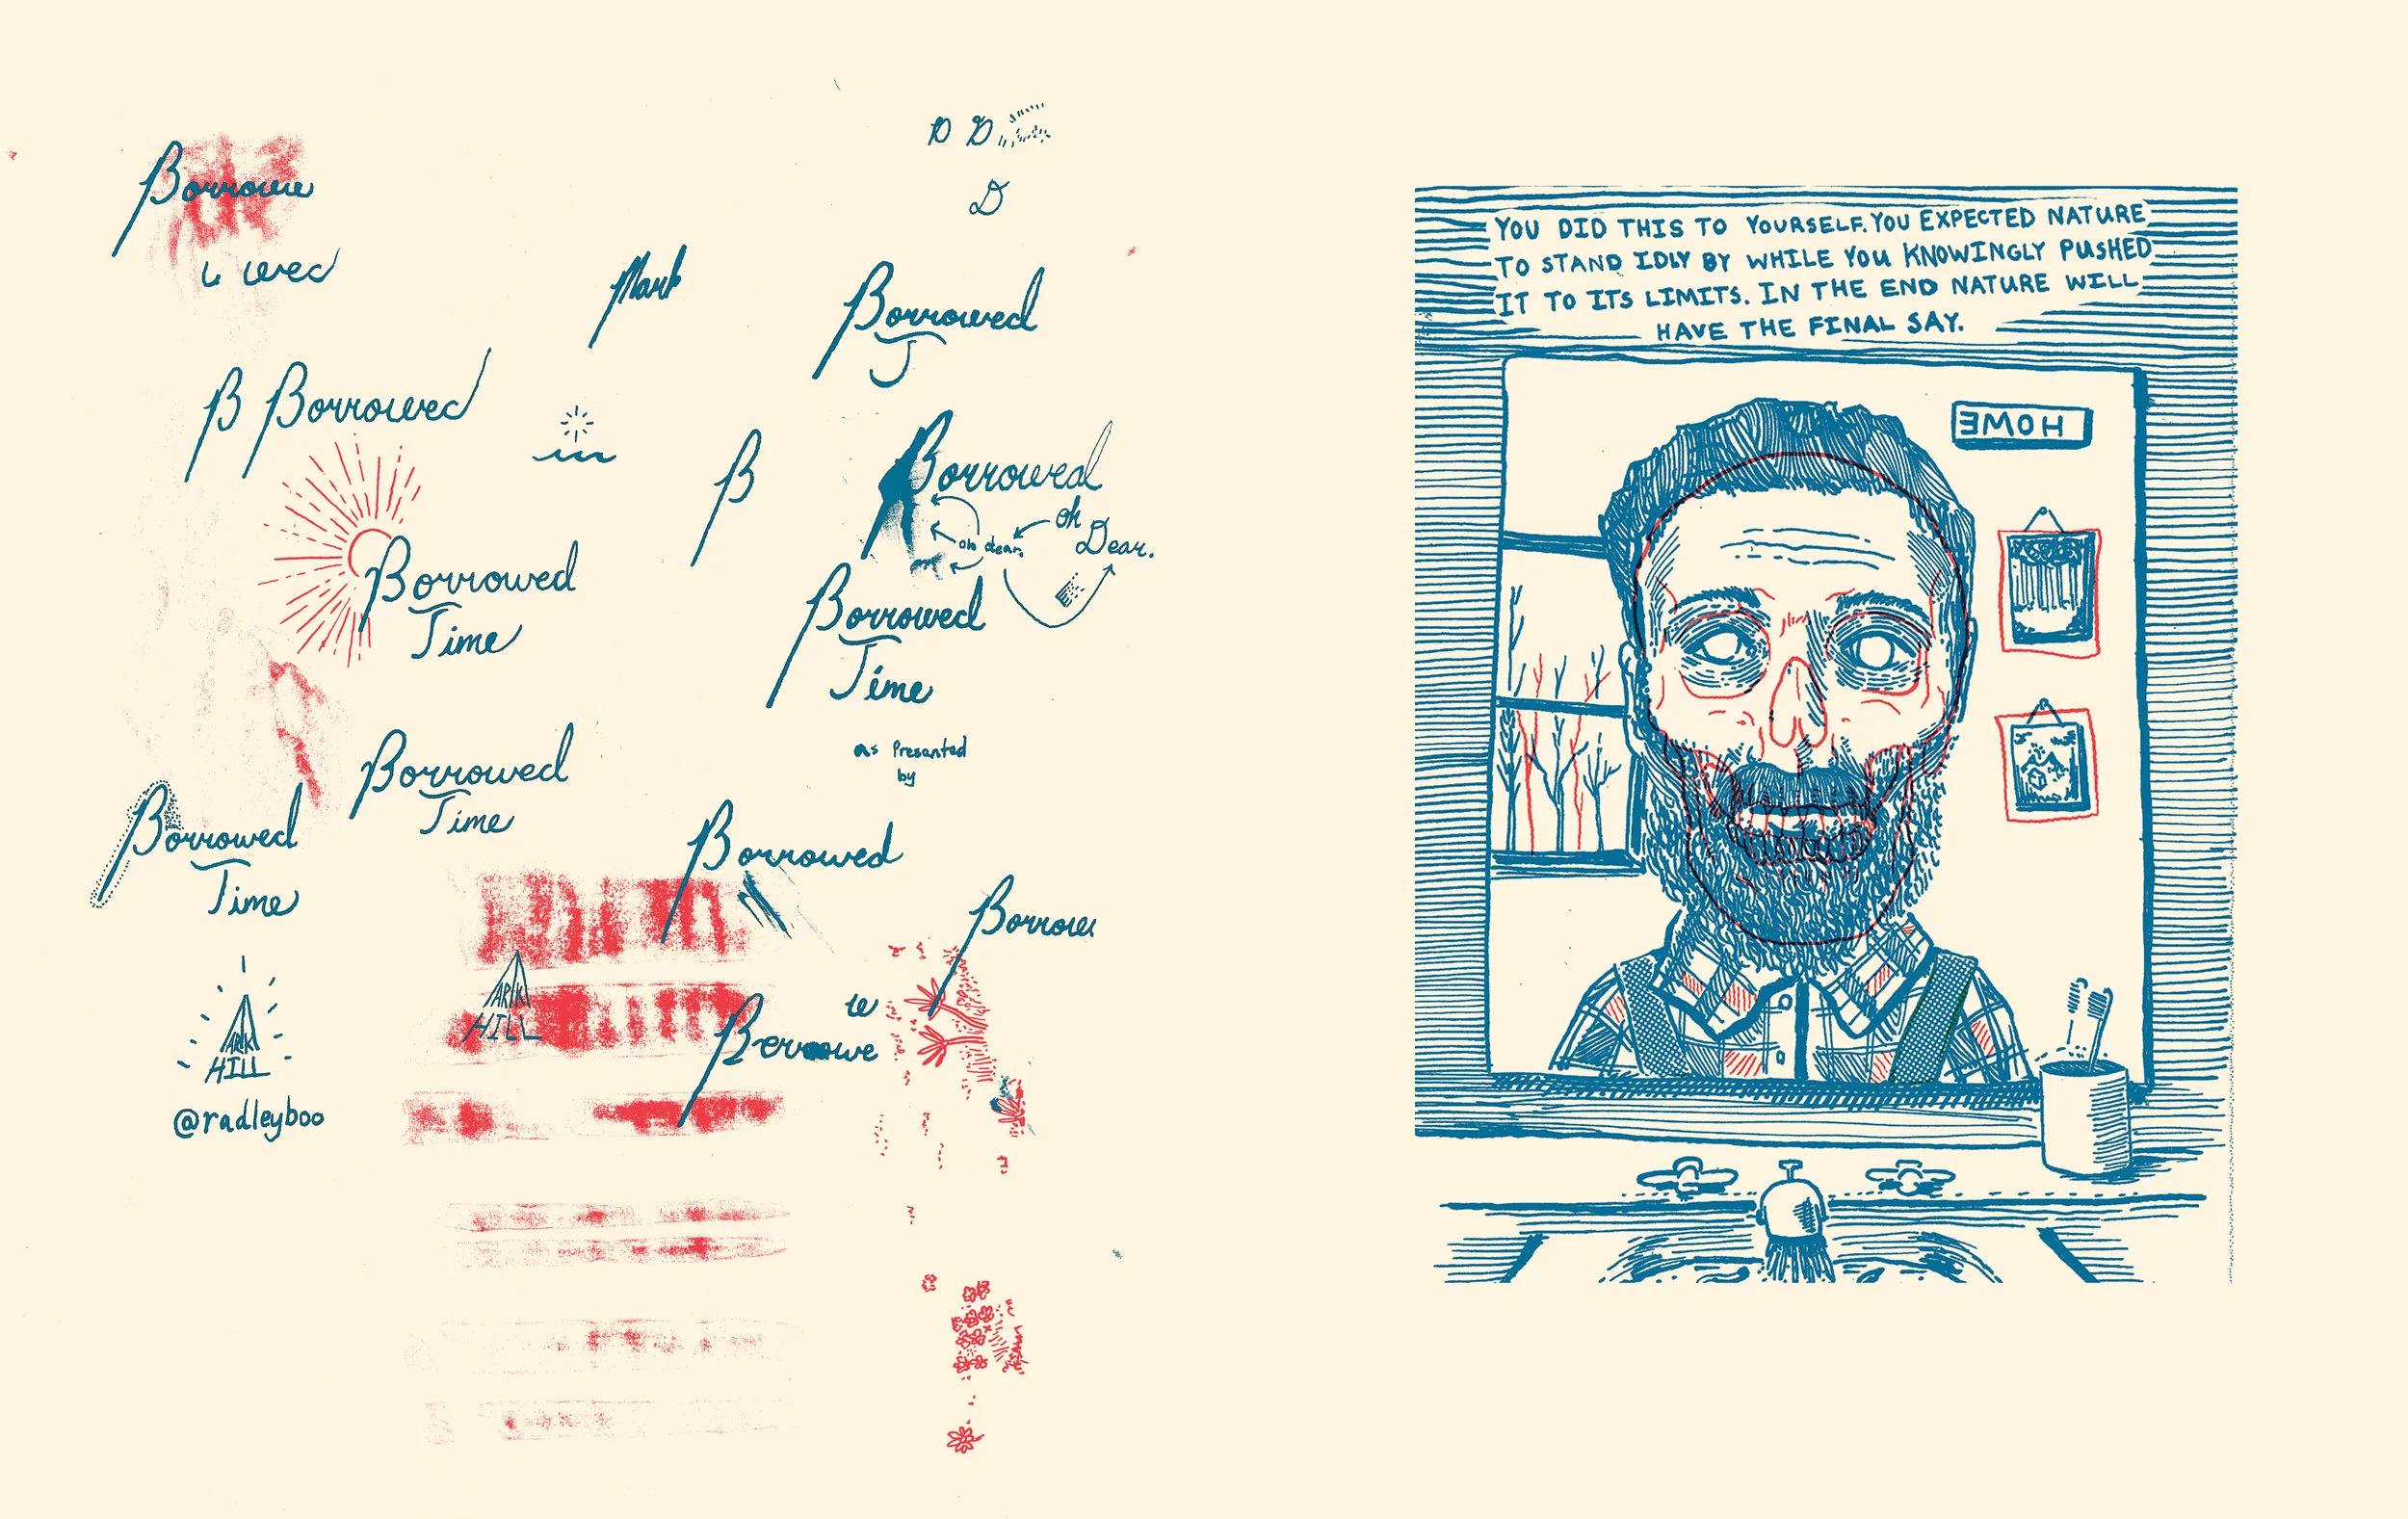 D D
D
Borrowe
wed
Mark
Borrowed
T
B Borrowed
B
Borrowed
oh
Dear.
oh dear.
Borrowed
Time
Borrowed
Time
as Presented
by
Borrowed
Time
Borrowed
Time
Borrowed
Borrow
ARK
HILL
w
Berrowe
ARK
HILL
@radleyboo
YOU DID THIS TO YOURSELF. YOU EXPECTED NATURE
TO STAND IDLY BY WHILE YOU KNOWINGLY PUSHED
IT TO ITS LIMITS. IN THE END NATURE WILL
HAVE THE FINAL SAY.
HOME